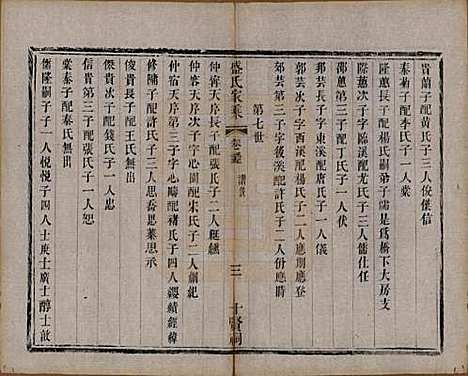 貴蘭子配黄氏子三人俊傑信
秦菊子配李氏子一人棠
隆蕙長子配楊氏嗣弟子儒是爲橋下大房支
隆蕙次子字臨溪配尤氏子三人儒仕任
邵蕙子配丁氏子一人伏
邦芸長子字東溪配唐氏子一人儀
郭芸次子字西溪配楊氏子二人應期應登
芸第三子字後溪配許氏子二人份應時
第七世
盛氏家集
卷
譜
三
十賢祠
仲賓天序長子配張氏子二人
仲容天序次子字心閒配宋氏子二人綱紀
仲宿天序第三子字心疇配褚氏子四人纓績經緯
修隋子配許氏子三人思喬思萊思承
俊貴長子配王氏無出
傑貴次子配錢氏子一人忠
信貴第三子配張氏子一人恕
棠秦子配秦氏無出
儒隆嗣子子一人悅悅子四人士庚士廣士醇士敦